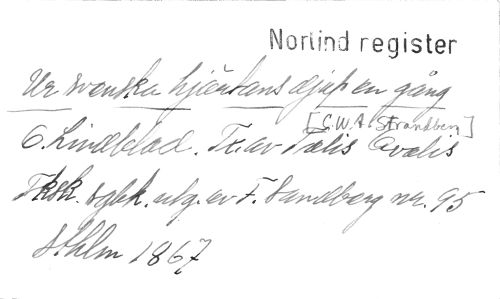 Norlind register
Ur svenska hjärtans djup en gång
[C.W.A. Strandberg]
O. Lindblad. Tr. av Talis Qvalis
Fksk. sgbk. utg. av F. Sandberg nr. 95
Sthlm 1867